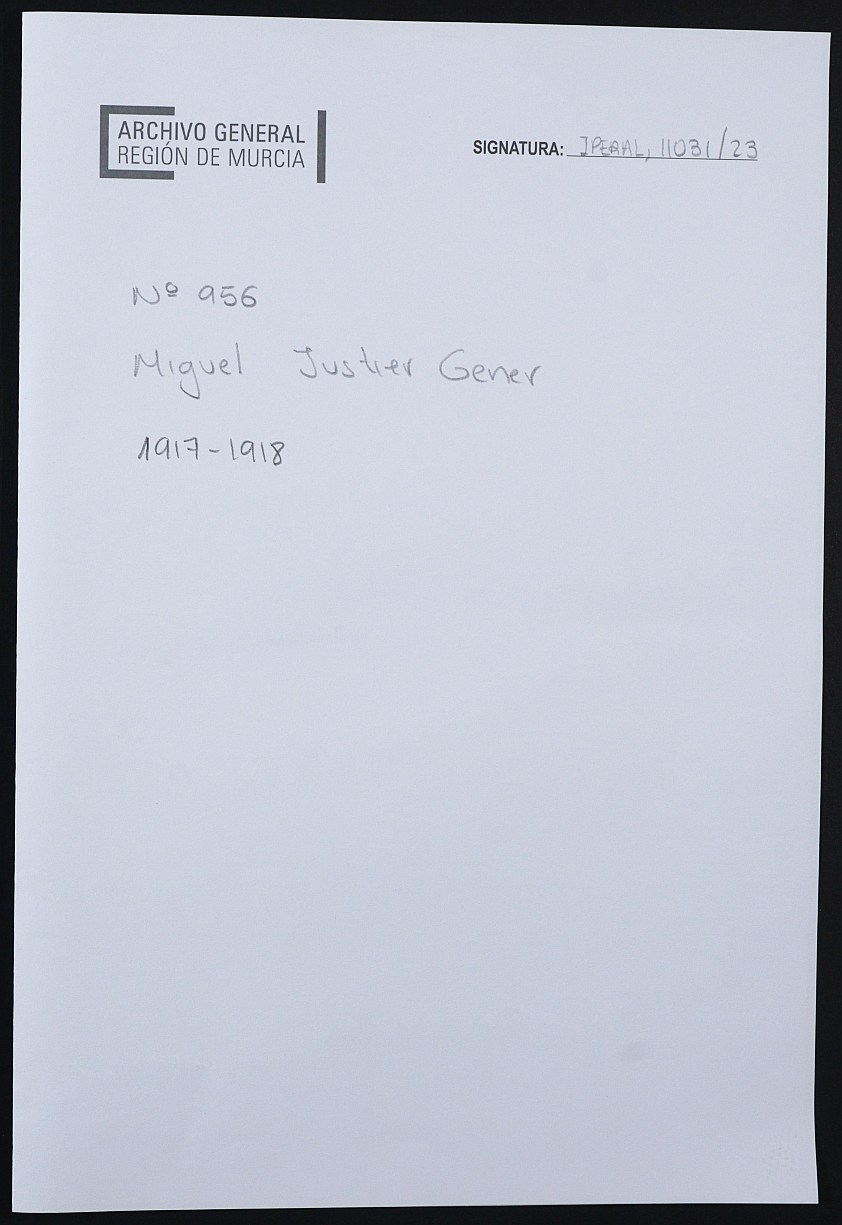 ARCHIVO GENERAL
REGIÓN DE MURCIA
SIGNATURA: JPERAL, 11031/23
Nº 956
Miguel Justier Gener
1917-1918